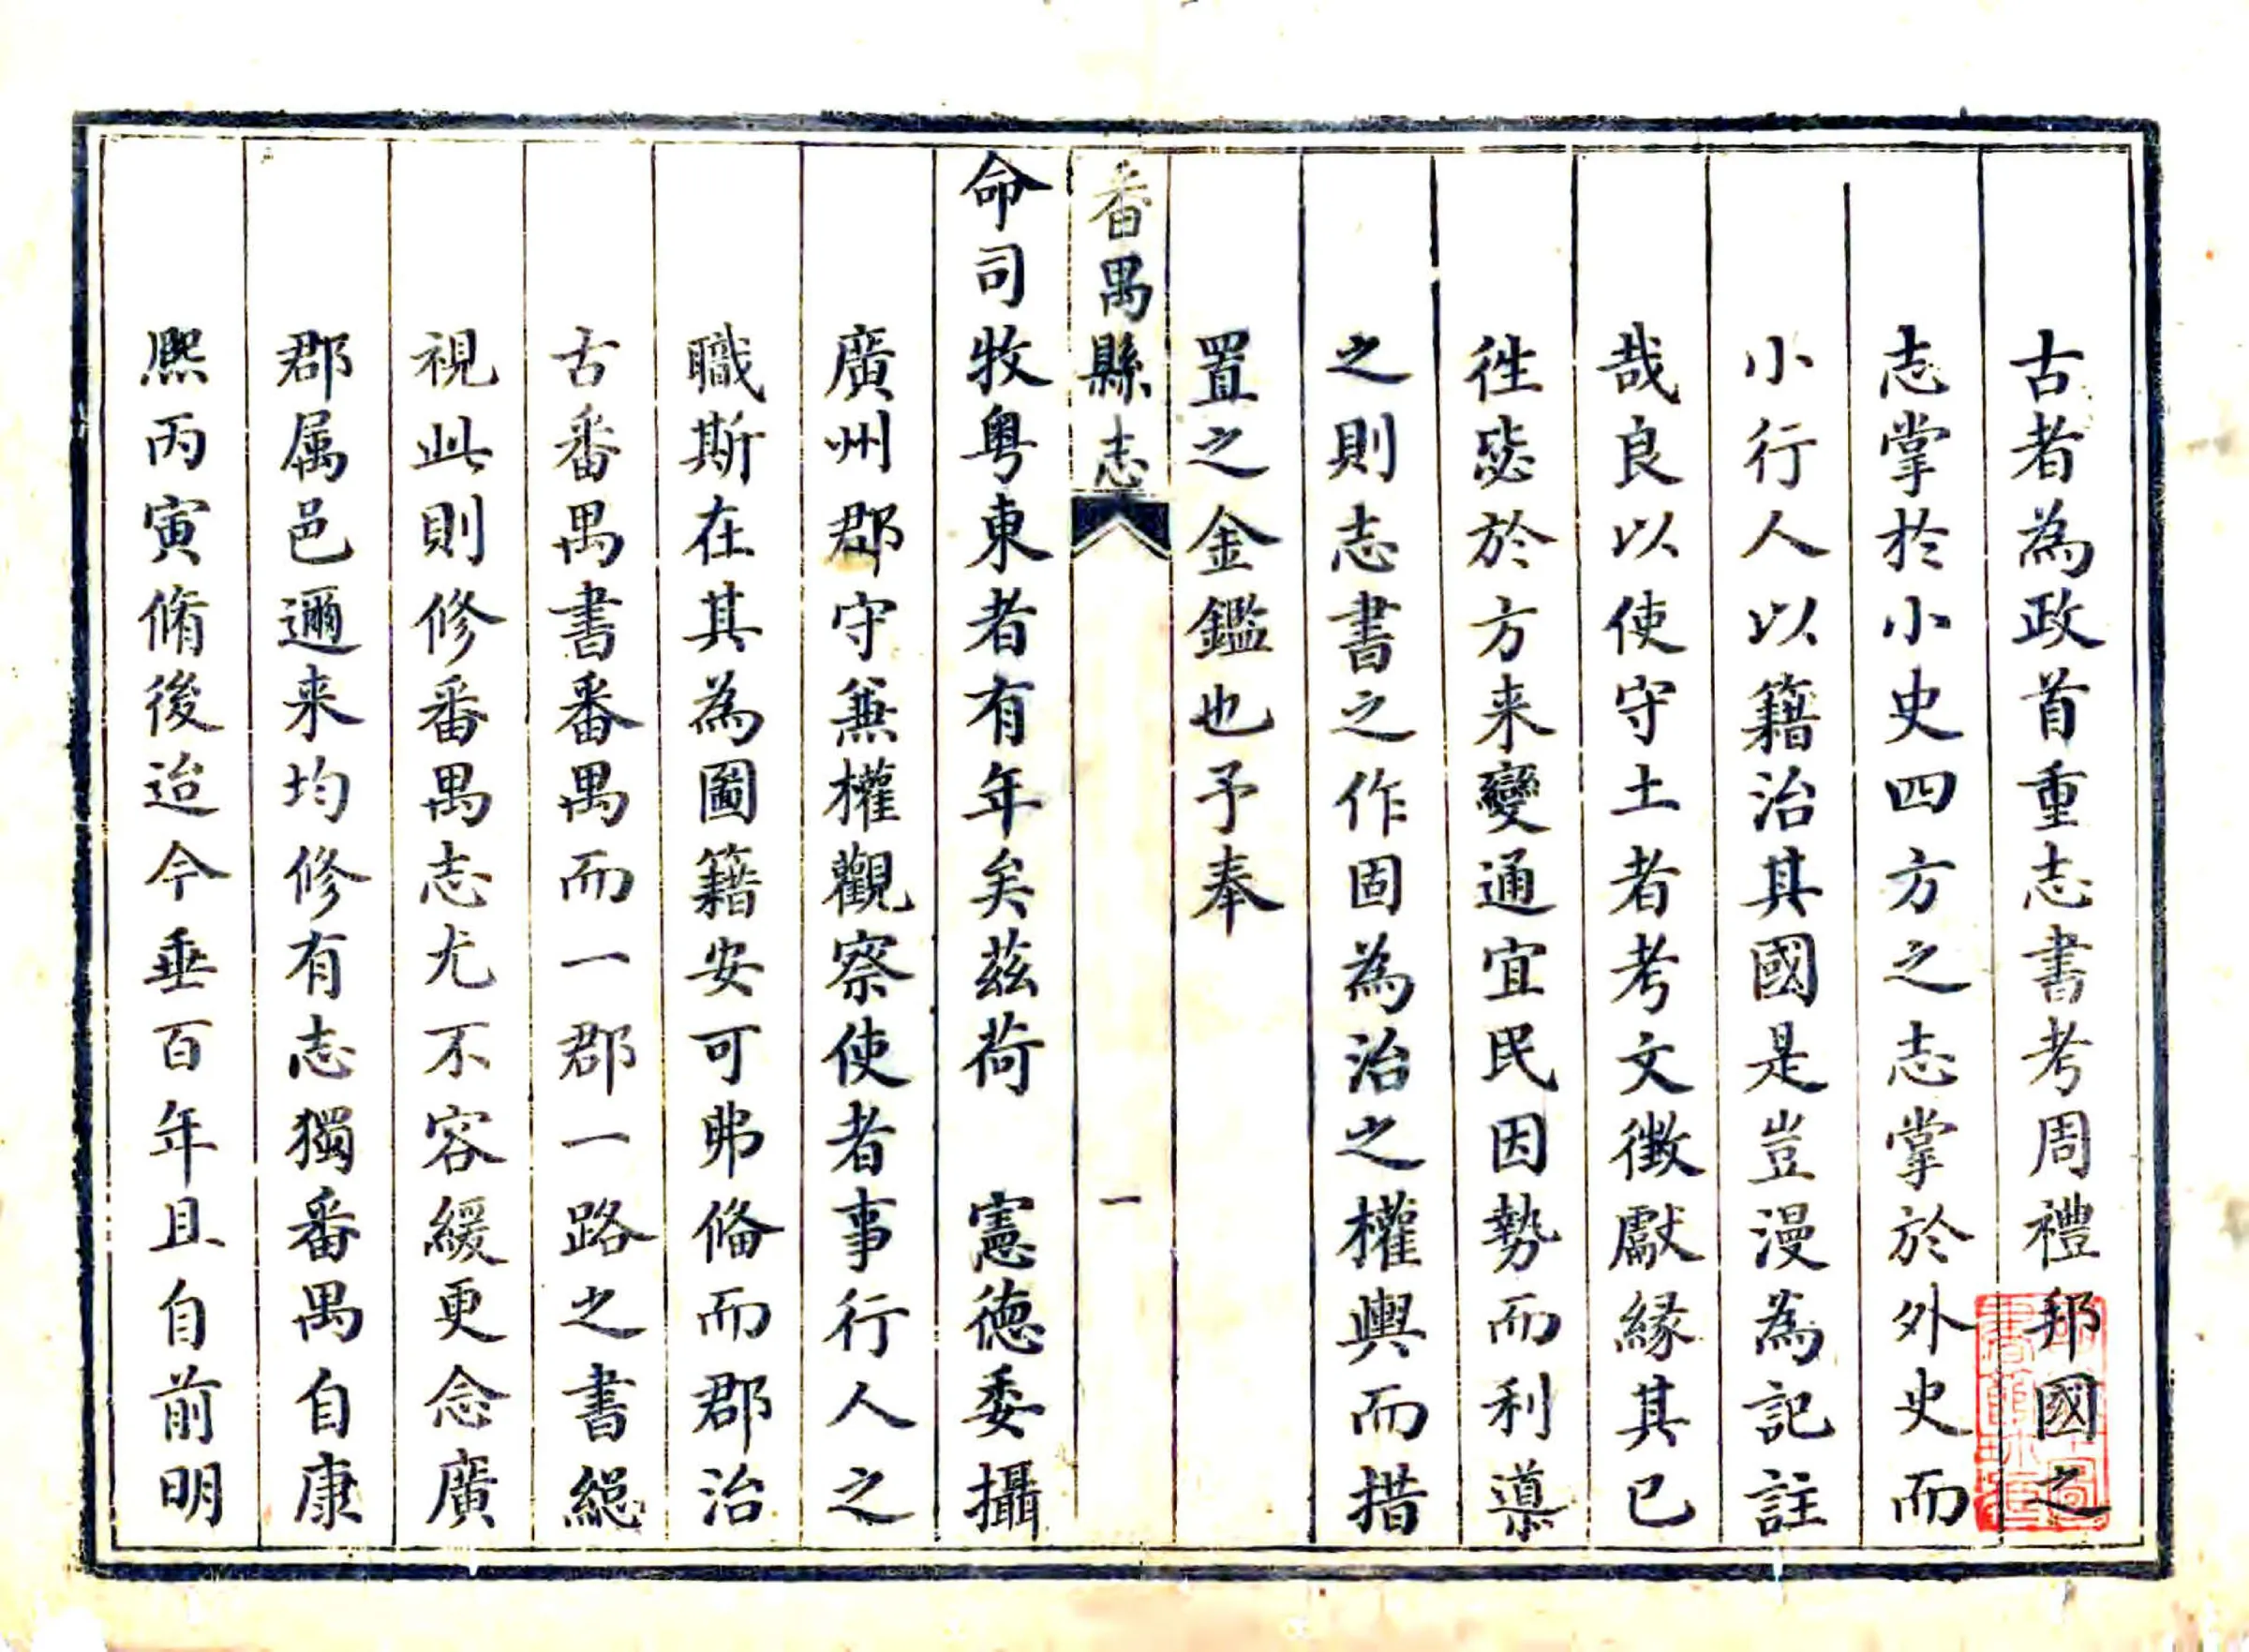 古者為政首重志書考周禮邦國之
志掌於小史四方之志掌於外史而
小行人以籍治其國是豈漫為記註
哉良以使守土者考文徵獻緣其已
徃毖於方来變通宜民因勢而利導
之則志書之作固為治之權輿而措
置之金鑑也予奉
番禺縣志
一
命司牧粤東者有年矣茲荷 憲德委攝
廣州郡守兼權觀察使者事行人之
職斯在其為圖籍安可弗俻而郡治
古番禺書番禺而一郡一路之書緫
視此則修番禺志尤不容緩更念廣
郡属邑邇来均修有志獨番禺自康
熈丙寅脩後迨今垂百年且自前明